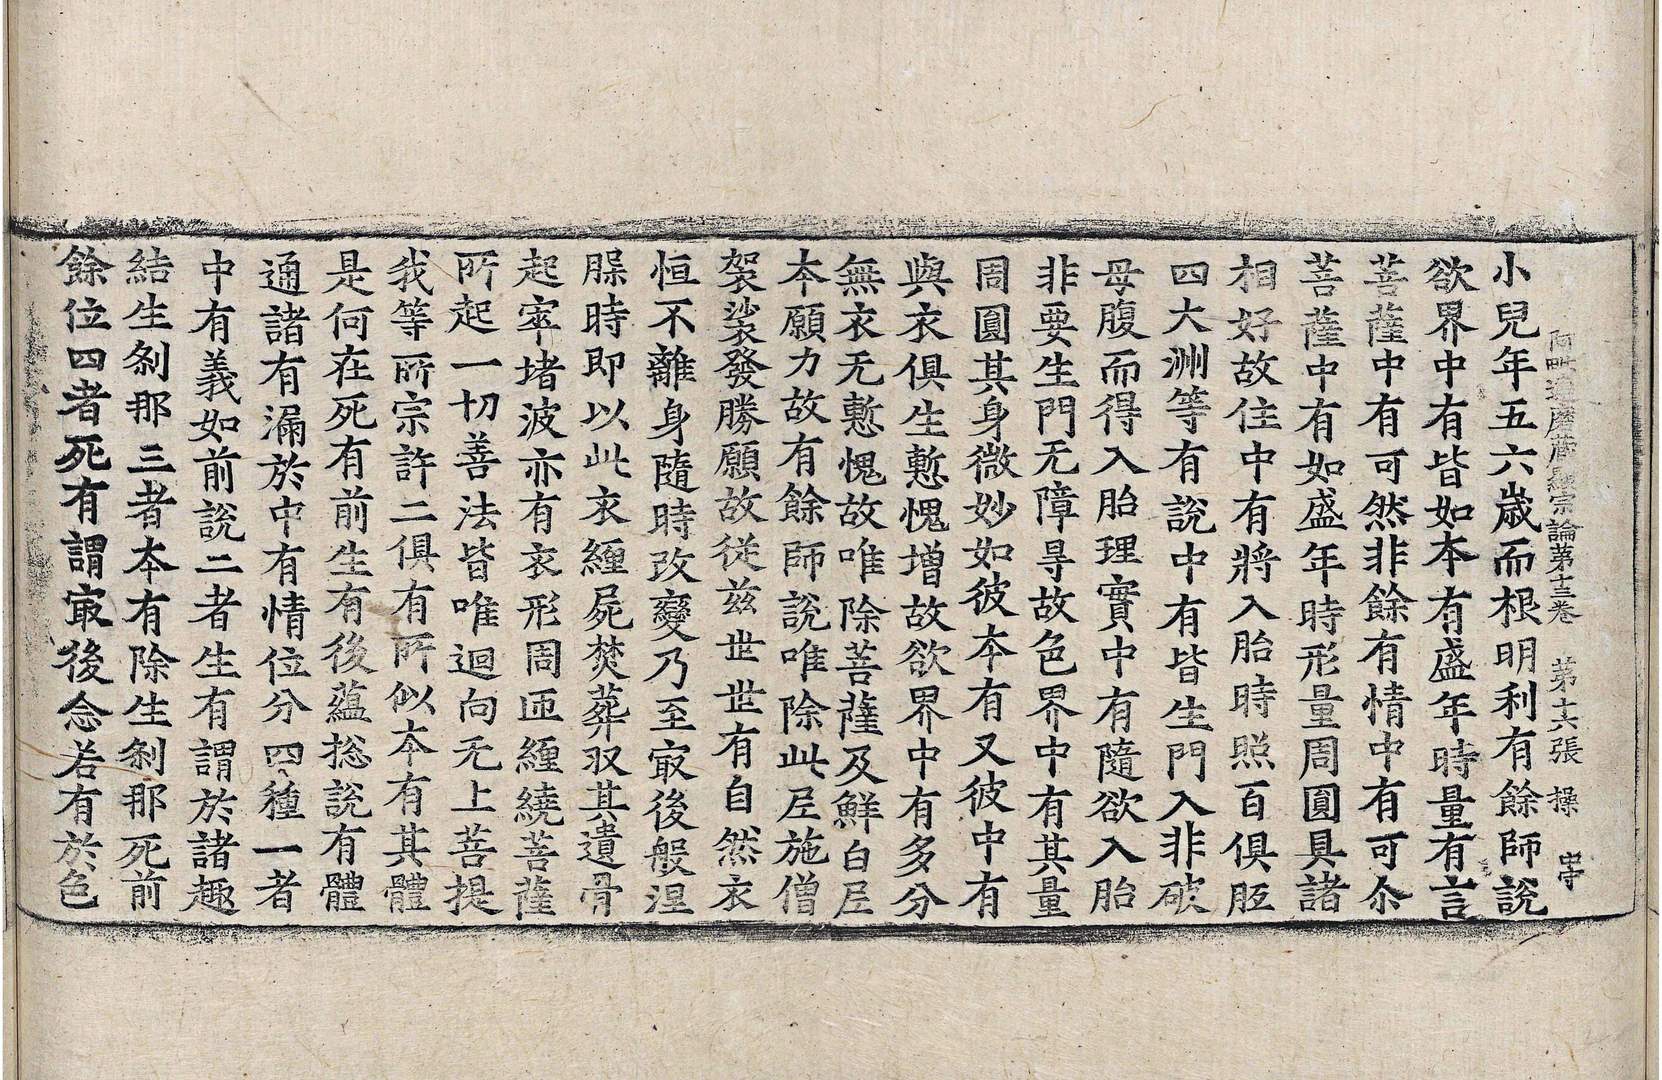 阿毗達磨藏顯宗論第十三卷　第十六張　操
小兒年五六歲而根明利有餘師說
欲界中有皆如本有盛年時量有言
菩薩中有可然非餘有情中有可尒
菩薩中有如盛年時形量周圓具諸
相好故住中有將入胎時照百俱胝
四大洲等有說中有皆生門入非破
母腹而得入胎理實中有隨欲入胎
非要生門无障㝵故色界中有其量
周圓其身微妙如彼本有又彼中有
與衣俱生慙愧增故欲界中有多分
無衣无慙愧故唯除菩薩及鮮白尼
本願力故有餘師說唯除此尼施僧
袈裟發勝願故從兹世世有自然衣
恒不離身隨時改變乃至㝡後般涅
臊時即以此衣纏屍焚葬収其遺骨
起窣堵波亦有衣形周匝纏繞菩薩
所起一切善法皆唯迴向无上菩提
我等所宗許二俱有所似本有其體
是何在死有前生有後蘊捴說有體
通諸有漏於中有情位分四種一者
中有義如前說二者生有謂於諸趣
結生刹那三者本有除生刹那死前
餘位四者死有謂㝡後念若有於色